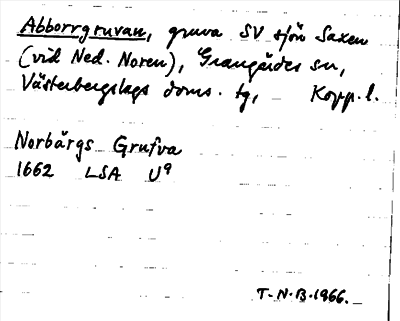 Abborrgruvan, gruva SV sjön Saxen
(vid Ned. Noren), Grangärdes sn,
Västerbergslags doms. tg, Kopp. l.
Norbärgs Grufva
1662 LSA U9
T-N.B.1966.